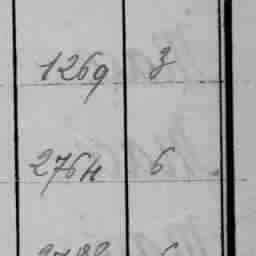 1269 3
2764 6